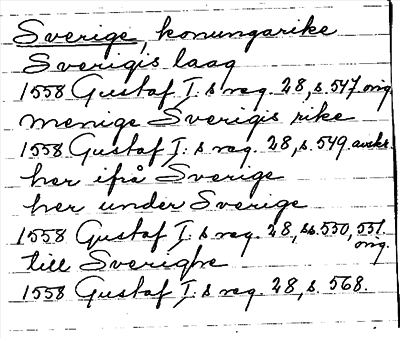 Sverige, konungarike
Sverigis laag
1558 Gustaf I:s reg. 28, s. 547 orig.
menige Sverigis rike
1558 Gustaf I:s reg. 28, s. 549 avskr.
her ifrå Sverige
her under Sverige
1558 Gustaf I:s reg. 28, ss. 550, 551.
orig.
till Sverighe
1558 Gustaf I:s reg. 28, s. 568.